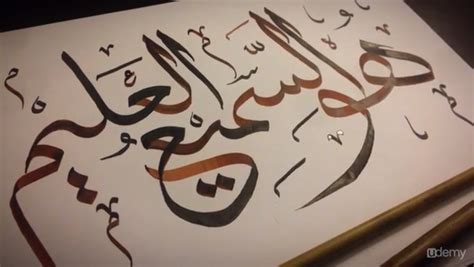 هو السميع العليم
udemy